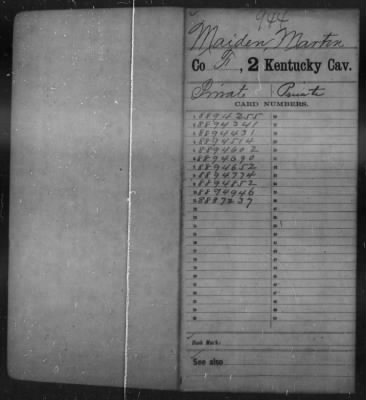 944
Maiden, Martin
Co , 2 Kentucky Cav.
Private Private
CARD NUMBERS.
1 8894255
8894341
8894431
8894514
8894602
8894690
8894652
8894774
8894852
8894946
8887237
Book Mark:
See also